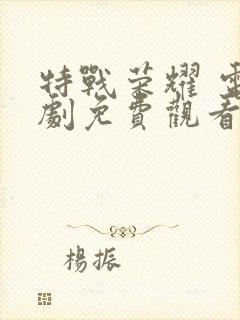 特戰榮耀 電
劇免費觀看
楊振